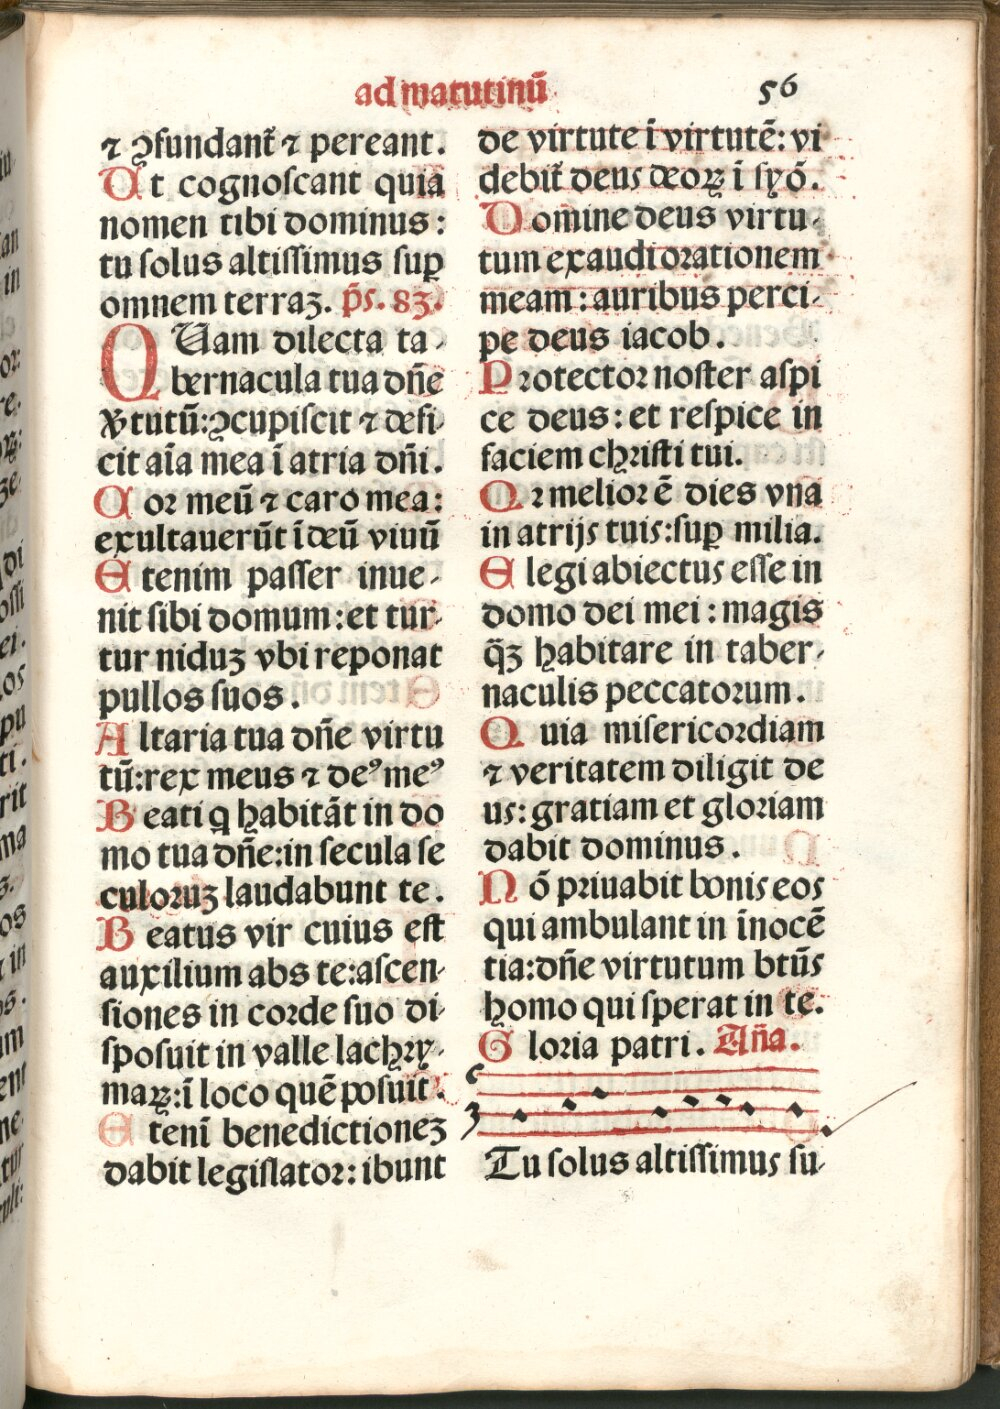 ad matutinū
56
⁊ ꝯfundant᷑ ⁊ pereant.
Ut cognoſcant quia
nomen tibi dominus:
tu ſolus altiſſimus suꝑ
omnem terraꝫ. p̄s. 83.
QUam dilecta ta-
bernacula tua dn̄e
v̾tutū:ꝯcupiſcit ⁊ defi-
cit aīa mea ī atria dn̄i.
Cor meū ⁊ caro mea:
exultauerūt ī deū viuū
Etenim paſſer inue-
nit ſibi domum:et tur-
tur niduꝫ vbi reponat
pullos ſuos.
Altaria tua dn̄e virtu
tū:rex meus ⁊ deꝰ meꝰ
Beati q habitāt in do
mo tua dn̄e:in ſecula ſe
culoruꝫ laudabunt te.
Beatus vir cuius eſt
auxilium abs te:aſcen-
ſiones in corde ſuo di-
ſpoſuit in valle lachry-
maꝝ:ī loco quē poſuit.
Etenī benedictioneꝫ
dabit legiſlator:ibunt
de virtute ī virtutē:vi
debit᷑ deus deoꝝ ī ſyō.
Domine deus virtu-
tum exaudi orationem
meam:auribus perci-
pe deus iacob.
Protector noſter aſpi
ce deus:et reſpice in
faciem chriſti tui.
Qr melior ē dies vna
in atrijs tuis:ſuꝑ milia.
Elegi abiectus eſſe in
domo dei mei:magis
q̄ꝫ habitare in taber-
naculis peccatorum.
Quia miſericordiam
⁊ veritatem diligit de
us:gratiam et gloriam
dabit dominus.
Nō priuabit bonis eos
qui ambulant in īnocē
tia:dn̄e virtutum btūs
homo qui ſperat in te.
Gloria patri. An̄a.
Tu ſolus altiſſimus ſu-